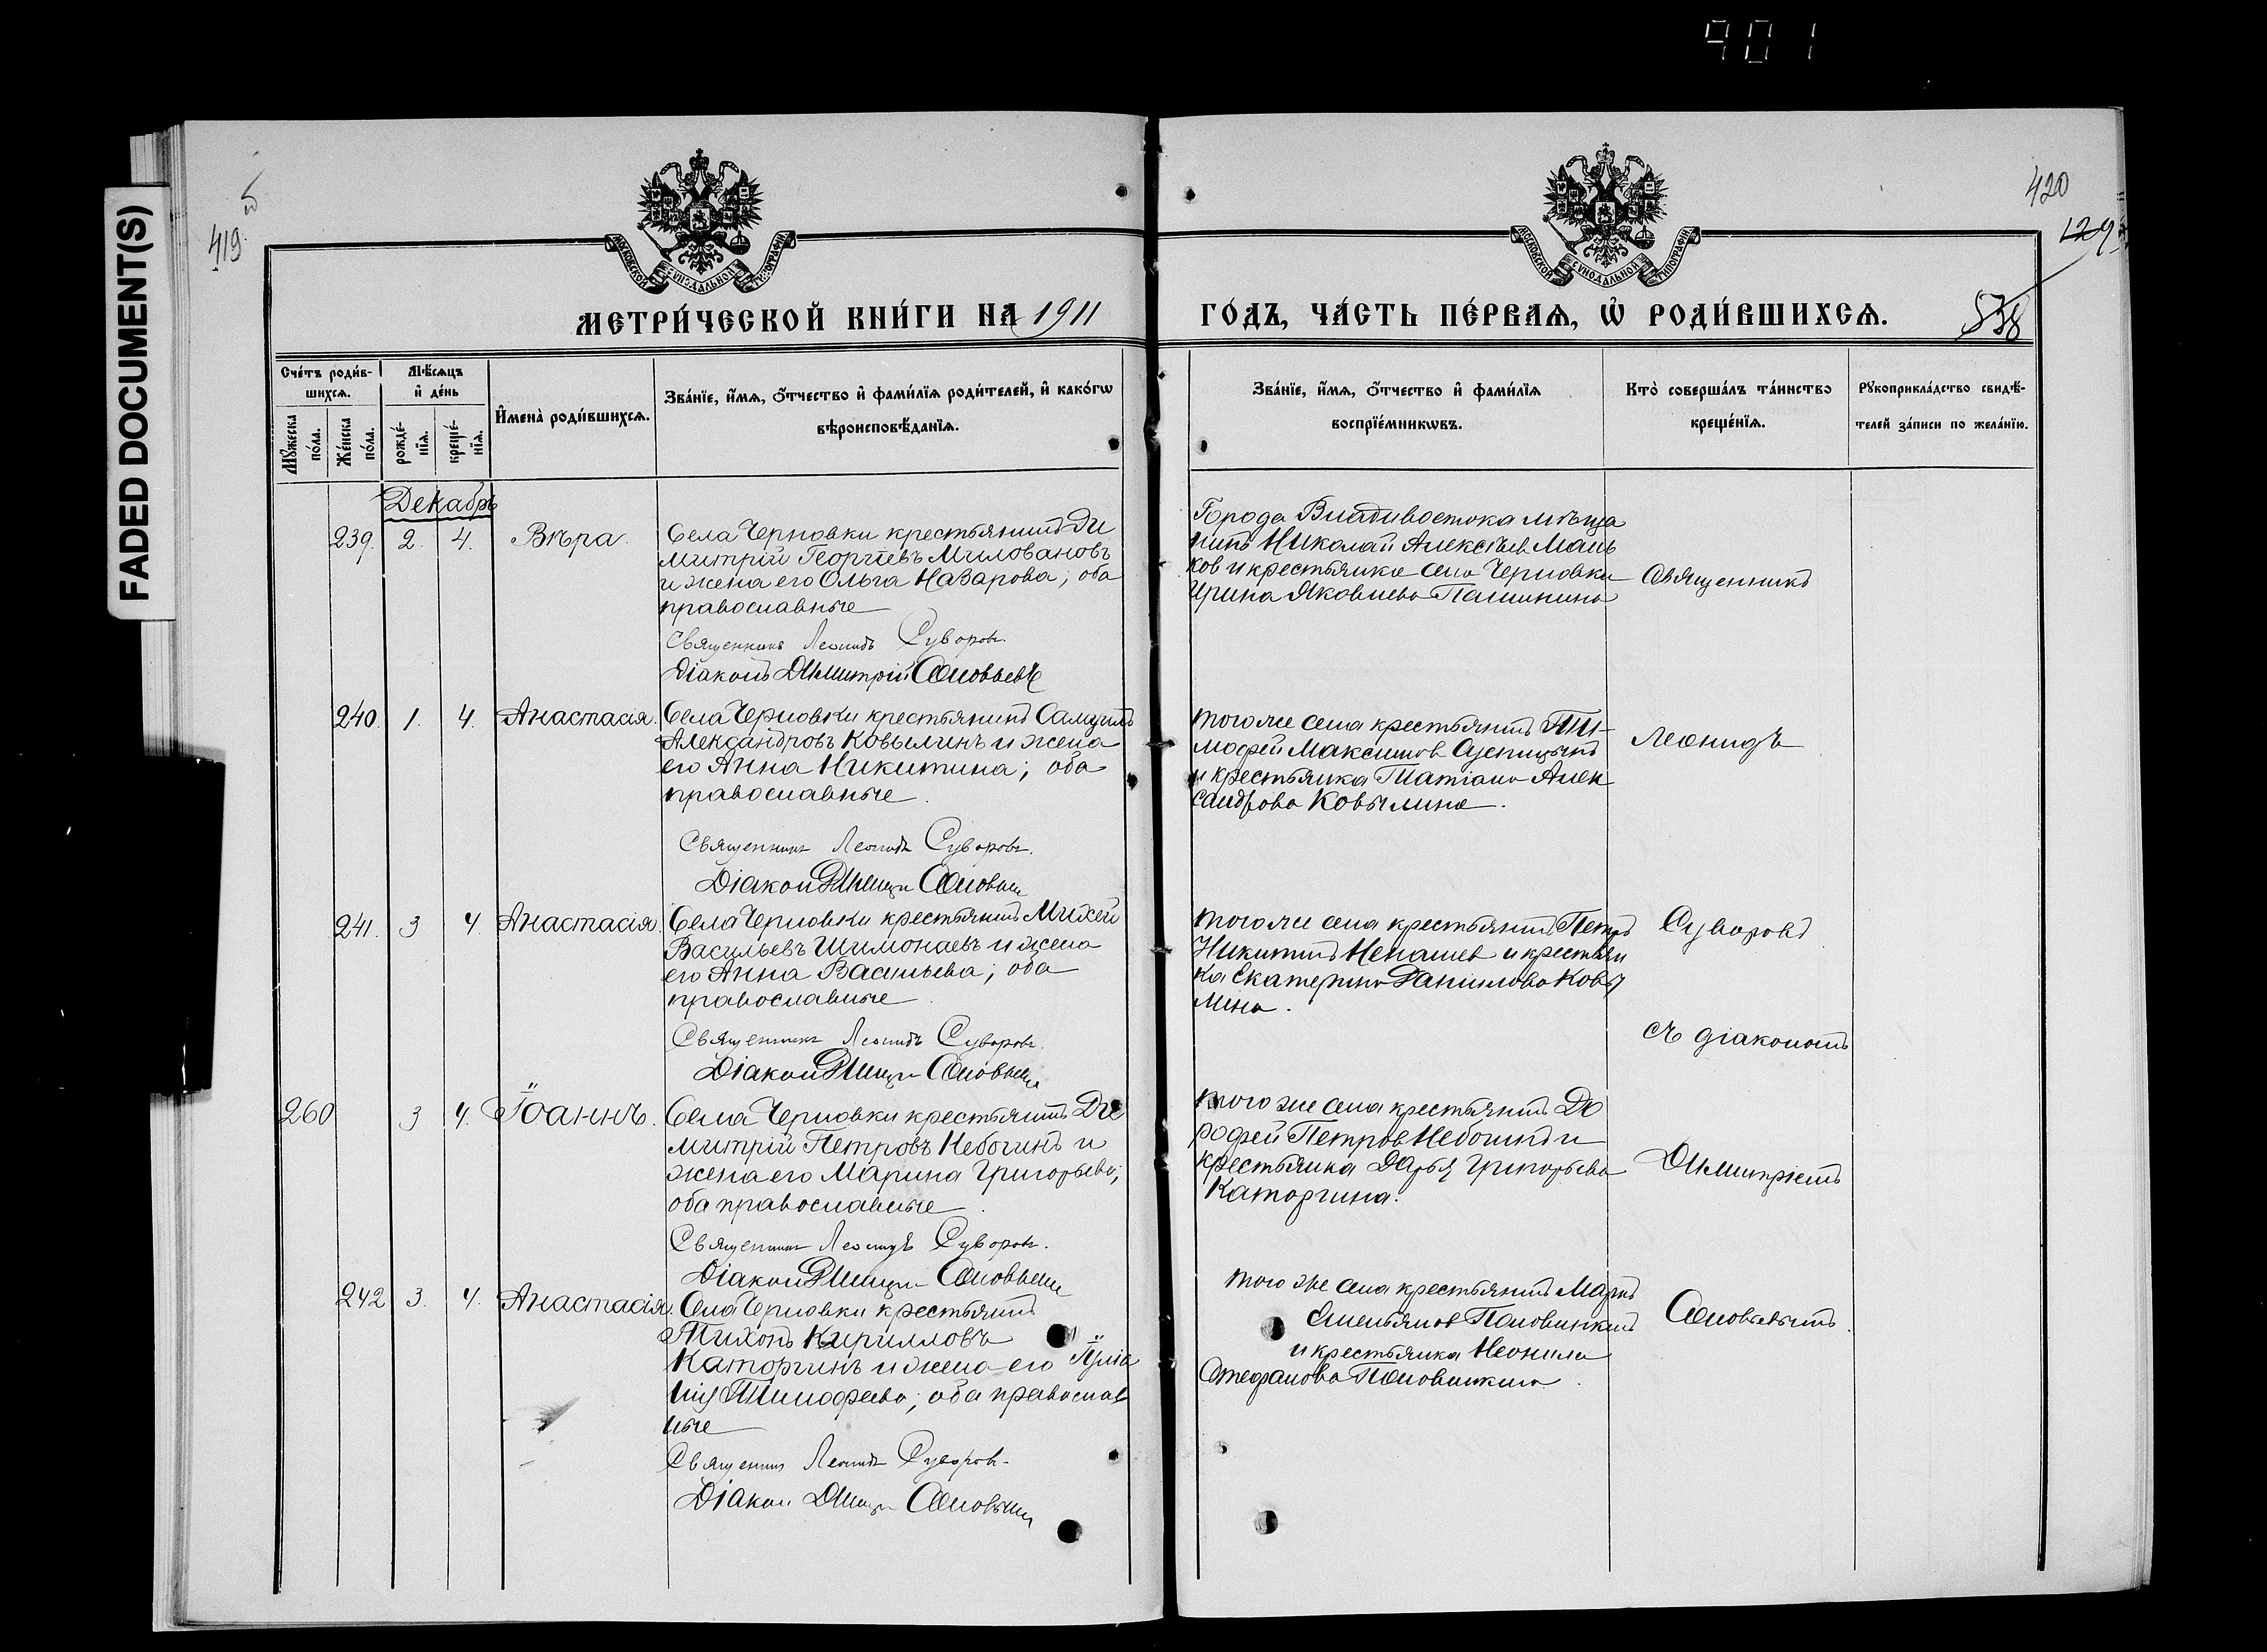 901
FADED DOCUMENT(S)
419
420
129
538
МОСКОВСКОЙ СѴНОДАЛЬНОЙ ТИПОГРАФІИ
МОСКОВСКОЙ СѴНОДАЛЬНОЙ ТИПОГРАФІИ
МЕТРИ́ЧЕСКОЙ КНИ́ГИ НА 1911
ГО́ДЪ, ЧА́СТЬ ПЕ́РВАѦ, Ѡ҆ РОДИ́ВШИХСѦ.
Сче́тъ роди́в-
шихсѧ.
Мꙋ́жеска
по́ла.
Же́нска
по́ла.
Мѣ́сѧцъ
и҆ де́нь
рожде́-
нїѧ.
креще́-
нїѧ.
И҆мена̀ роди́вшихсѧ.
Зва́нїе, и҆́мѧ, ѻ҆́тчество и҆ фами́лїѧ роди́телей, и҆ како́гѡ
вѣроисповѣ́данїѧ.
Зва́нїе, и҆́мѧ, ѻ҆́тчество и҆ фами́лїѧ
воспрїе́мникѡвъ.
Кто̀ соверша́лъ та́инство
креще́нїѧ.
Рꙋкоприкла́дство свидѣ́-
телей за́писи по жела́нїю.
Декабрь
239. 2. 4. Вѣра.
Села Черновки крестьянинъ Ди
митрій Георгіевъ Миловановъ
и жена его Ольга Назарова; оба
православные
Священникъ Леонидъ Суворовъ.
Діаконъ Димитрій Соловьевъ
Города Владивостока мѣща
нинъ Николай Алексѣев Мань
ков и крестьянка села Черновки
Ирина Яковлева
Священникъ
240. 1. 4. Анастасія.
Села Черновки крестьянинъ Самуилъ
Александровъ Ковылинъ и жена
его Анна Никитина; оба
православные.
Священникъ Леонидъ Суворовъ.
Діакон Димитрій Соловьев
того же села крестьянинъ Ти-
мофей Максимов
и крестьянка Татіана Алек
сандрова Ковылина.
Леонидъ
241. 3 4. Анастасія.
Села Черновки крестьянинъ Михей
Васильевъ Шимонаевъ и жена
его Анна Васильева; оба
православные.
Священникъ Леонидъ Суворовъ.
Діакон Димитрій Соловьев
того же села крестьянинъ Петръ
Никитинъ Ненашев и крестьян
ка Екатерина Данилова Ковы
лина.
Суворовъ
съ діакономъ
260 3 4. Іоаннъ.
Села Черновки крестьянинъ Ди
митрій Петровъ Небогинъ и
жена его Марина Григорьева;
оба православные.
Священникъ Леонидъ Суворовъ.
Діакон Димитрій Соловьев
того же села крестьянинъ До
рофей Петров Небогинъ и
крестьянка Дарья Григорьева
Каторгина.
Димитріемъ
242 3. 4. Анастасія.
Села Черновки крестьянинъ
Тихонъ Кирилловъ
Каторгинъ и жена его Іулiа
нія Тимофеева; оба православ
ные
Священникъ Леонидъ Суворовъ.
Діакон Димитрій Соловьев
того же села крестьянинъ Маркъ
Емельянов Половинкинъ
и крестьянка Неонила
Стефанова Половинкина.
Соловьевымъ.